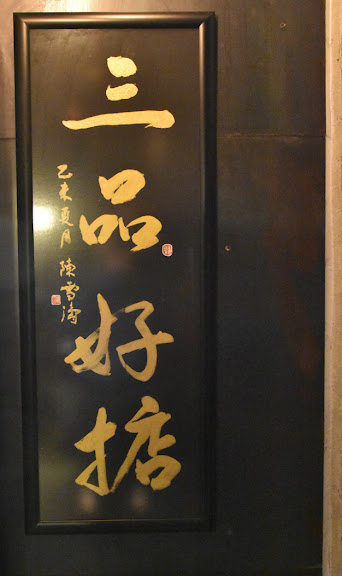 三品好掂
乙未夏月 陳雪濤